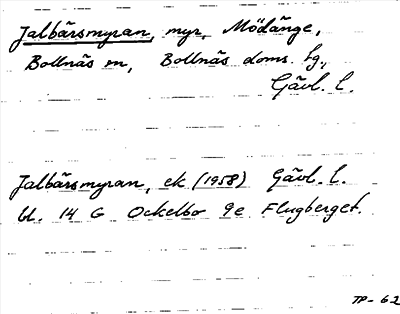 Jalbärsmyran, myr, Mödänge,
Bollnäs sn, Bollnäs doms. hg.,
Gävl. l.
Jalbärsmyran, ek (1958) Gävl. l.
bl. 14 G Ockelbo 9e Flugberget.
TP-62